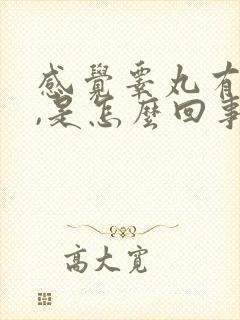 感覺睾丸有
,是怎麼回事
高大寬